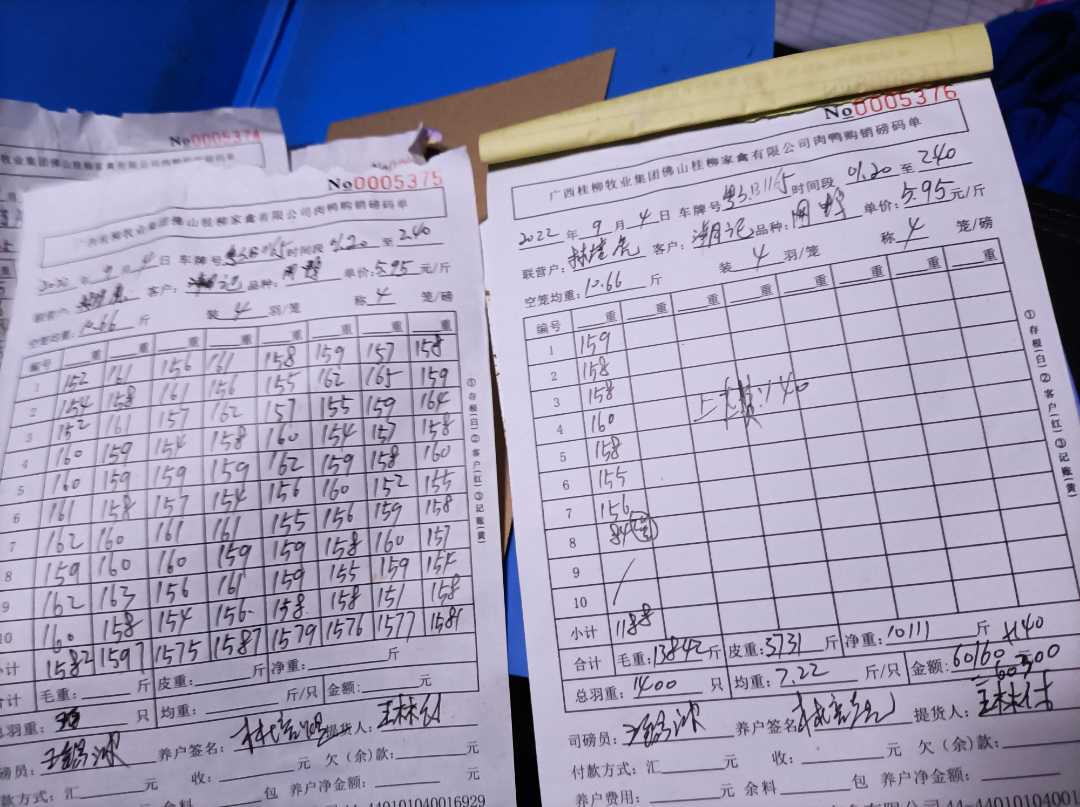 No0005374
牧业集团佛山桂柳家禽有限公司肉鸭购销磅码单
No0005375
广西桂柳牧业集团佛山桂柳家禽有限公司肉鸭购销磅码单
2022 年 9 月 4 日 车牌号 时间段 01.20 至 240
联营户: 客户: 记 品种: 单价: 5.95 元/斤
空笼均重: 10.66 斤 装 4 羽/笼 称 4 笼/磅
编号 重 重 重 重 重 重 重 重
1 152 161 156 161 158 159 157 158
2 154 158 161 156 155 162 165 159
3 152 161 157 162 157 155 159 164
4 160 159 154 158 160 154 157 158
5 160 159 159 159 162 159 158 160
6 161 158 157 154 156 160 152 155
7 162 160 161 161 155 156 159 158
8 159 160 160 159 159 158 160 157
9 162 163 156 161 159 155 159 154
10 160 158 154 156 158 158 151 158
小计 1582 1597 1575 1587 1579 1576 1577 1581
合计 毛重: 斤 皮重: 斤 净重: 斤
总羽重: 只 均重: 斤/只 金额: 元
司磅员: 养户签名: 提货人:
付款方式: 汇 元 收: 元 欠(余)款: 元
余料 包 养户净金额: 元
440101040016929
①存根(白)②客户(红)③记账(黄)
No0005376
广西桂柳牧业集团佛山桂柳家禽有限公司肉鸭购销磅码单
2022 年 9 月 4 日 车牌号 时间段 01.20 至 240
联营户: 客户: 潮记 品种: 单价: 5.95 元/斤
空笼均重: 10.66 斤 装 4 羽/笼 称 4 笼/磅
编号 重 重 重 重 重 重 重 重
1 159
2 158
3 158
4 160
5 158
6 155
7 156
8 84
9
10
小计 1188
合计 毛重: 13842 斤 皮重: 3731 斤 净重: 10111 斤
总羽重: 1400 只 均重: 7.22 斤/只 金额: 60160 元
+140
=60300
司磅员: 养户签名: 提货人:
付款方式: 汇 元 收: 元 欠(余)款: 元
养户费用: 元 余料 包 养户净金额: 元
①存根(白)②客户(红)③记账(黄)